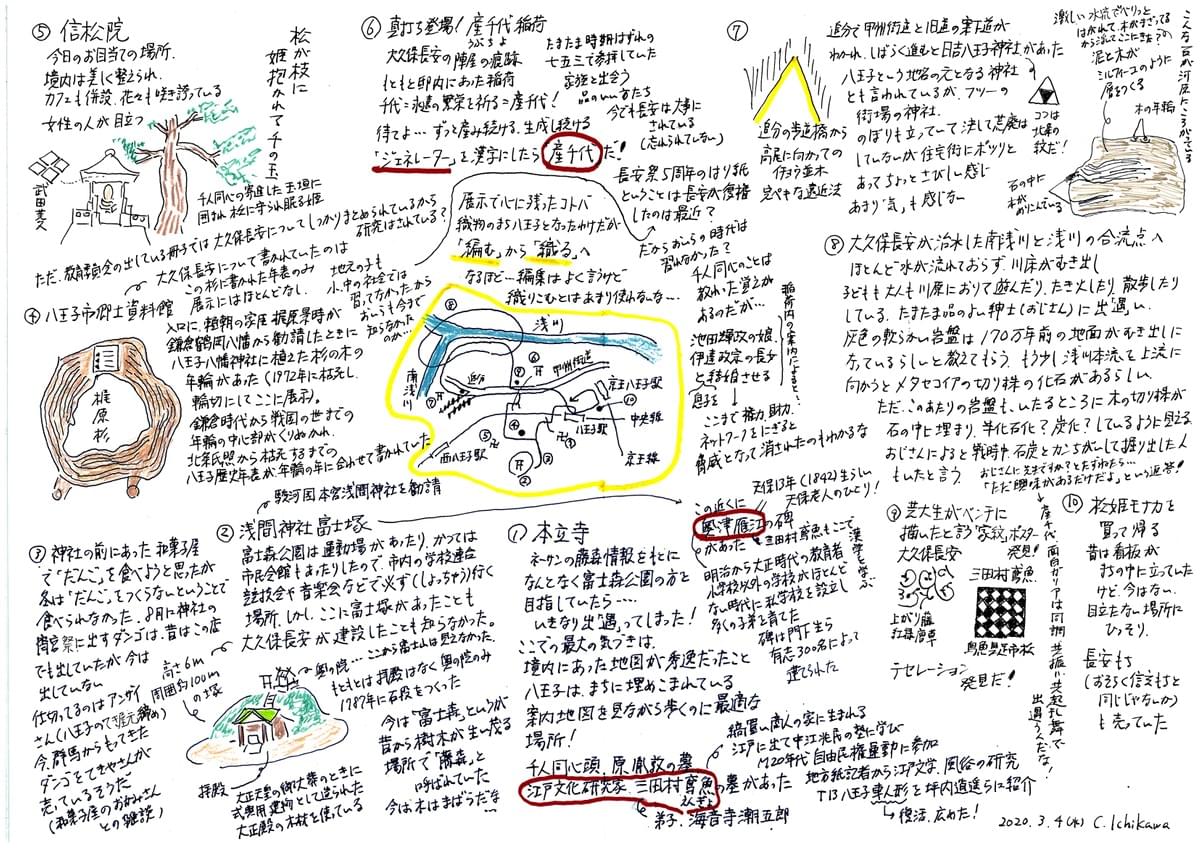 ⑤ 信松院
今日のお目当ての場所.
境内は美しく整えられ.
カフェも併設. 花々も咲き誇っている
女性の人が目立つ
松が枝に
松姫抱かれて千の玉
武田菱
千人同心の寄進した玉垣に
囲まれ松に守られ眠る松姫
⑥ 真打ち登場! 産千代稲荷
うぶちよ
大久保長安の陣屋の痕跡
もともと邸内にあった稲荷
千代=永遠の繁栄を祈る=産千代!
待てよ…ずっと産み続ける. 生成し続ける
「ジェネレーター」を漢字にしたら 産千代だ!
たまたま時期はずれの
七五三で参拝していた
家族と出会う
品のいい方たち
今でも長安は大事に
されている
(忘れられていない)
長安祭5周年のはり紙
ということは長安が復権
したのは最近?
だからおいらの時代は
習わなかった?
千人同心のことは
教わった覚えが
あるのだが…
稲荷内の案内によると…
池田輝政の娘,
伊達政宗の長女
と結婚させる
息子を
ここまで権力. 財力.
ネットワークをにぎると
脅威となって消されたのもわかるな
展示で心に残ったコトバ
織物のまち八王子となったわけだが
「編む」から「織る」へ
なるほど…編集はよく言うけど
織りこむとはあまり使わないな…
⑦
追分で甲州街道と旧道の案下道が
わかれ. しばらく進むと日吉八王子神社があった
八王子という地名の元となる神社
とも言われているが. フツーの
街場の神社.
のぼりも立っていて決して荒廃は
していないが住宅街にポツリと
あってちょっとさびしい感じ
あまり「気」も感じない
ココは
北条の
紋だ!
追分の歩道橋から
高尾に向かっての
イチョウ並木
完ぺきな遠近法
こんな石が河原にころがっている
激しい水流でべりっと
はがれて. 木がまざってる
から浮いてここにきた?の?
泥と木が
ミルフィーユのように
層をつくる
木の年輪
石の中に
木がめりこんでいる
⑧ 大久保長安が治水した南浅川と浅川の合流点へ
ほとんど水が流れておらず. 川床がむき出し
子どもも大人も川原におりて遊んだり. たき火したり. 散歩したり
している. たまたま品のよい紳士(おじさん)に出遇い.
灰色の軟らかい岩盤は170万年前の地面がむき出しに
なっているらしいと教えてもらう. もう少し浅川本流を上流に
向かうとメタセコイアの切り株の化石があるらしい.
ただ. このあたりの岩盤も. いたるところに木の切り株が
石の中に埋まり. 半化石化?炭化?しているように見える.
おじさんによると戦時中. 石炭とかんちがいして掘り出した人
もいたと言う.
おじさんに先生ですか?とたずねたら…
「ただ興味があるだけだよ」という返答!
ただ. 教育委員会の出している冊子では大久保長安についてしっかりまとめられているから
研究はされている?
④ 八王子市郷土資料館
大久保長安について書かれていたのは
この杉に書かれた年表のみ
展示にはほとんどなし.
地元の子も
小中の社会では
習ってなかったから
おいらも今まで
知らなかった
のか…
入口に. 頼朝の家臣 梶原景時が
鎌倉鶴岡八幡から勧請したときに
八王子八幡神社に植えた杉の木の
年輪があった(1972年に枯死し.
輪切にしてここに展示).
鎌倉時代から戦国の世までの
年輪の中心部がくりぬかれ.
北条氏照から枯死するまでの
八王子歴史年表が年輪の年に合わせて書かれていた
梶原杉
浅川
南浅川
追分
甲州街道
京王八王子駅
八王子駅
中央線
京王線
西八王子駅
駿河国本宮浅間神社を勧請
② 浅間神社富士塚
富士森公園は運動場があったり. かつては
市民会館もあったりしたので. 市内の学校連合
競技会や音楽会などで必ず(しょっちゅう)行く
場所. しかし. ここに富士塚があったことも
大久保長安が建設したことも知らなかった.
奥の院… ここから富士山は見えなかった.
もともとは拝殿はなく奥の院のみ
1987年に石段をつくった
高さ6m
周囲約100m
の塚
拝殿
大正天皇の御大葬のときに
式典用建物として造られた
大正殿の木材を使っている
今は「富士森」というが
昔から樹木が生い茂る
場所で「藤森」と
呼ばれていた
今は木はまばらだな…
③ 神社の前にあった和菓子屋
で"だんご"を食べようと思ったが
冬は"だんご"をつくらないということで
食べられなかった. 8月に神社の
例宮祭に出すダンゴは. 昔はこの店
でも出していたが今は
出していない
仕切ってるのはアンザイ
さん(八王子のテキ屋元締め)
今. 群馬からもってきた
ダンゴをてきやさんが
売っているそうだ
(和菓子屋のおかみさん
との雑談)
① 本立寺
ネーサンの藤森情報をもとに
なんとなく富士森公園の方を
目指していたら……
いきなり出"遇"ってしまった!
ここでの最大の気づきは.
境内にあった地図が秀逸だったこと
八王子は. まちに埋めこまれている
案内地図を見ながら歩くのに最適な
場所!
千人同心頭. 原胤敦の墓
江戸文化研究家 三田村鳶魚の墓があった
えんぎょ
弟子. 海音寺潮五郎
この近くに
奥津雁江の碑
があった
天保13年(1842)生まれ
天保老人のひとり!
三田村鳶魚もここで
漢学を学ぶ
明治から大正時代の教育者
小学校以外の学校がほとんど
ない時代に私学校を設立し
多くの子弟を育てた
碑は門下生ら
有志300名によって
建てられた
縞買い商人の家に生まれる
江戸に出て中江兆民の塾に学び
M20年代自由民権運動に参加
地方紙記者から江戸文学. 風俗の研究
T13八王子車人形を坪内逍遥らに紹介
復活. 広めた!
⑨ 芸大生がベンチに
描いたと言う「家紋」ポスター
発見!
大久保長安
上がり藤
三田村鳶魚
テセレーション
発見だ!
⑩ 松姫モナカを
買って帰る
昔は看板が
まちの中に立っていた
けど. 今はない.
目立たない場所に
ひっそり.
長安もち
(おそらく信玄もちと
同じじゃないか)
も売っていた
2020. 3. 4(水) C. Ichikawa